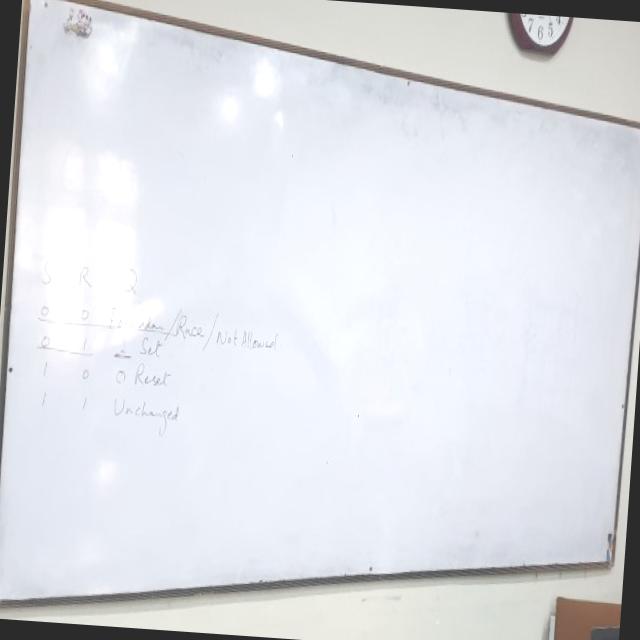 S R Q
0 0 /Race/Not Allowed
0 1 Set
1 0 0 Reset
1 1 Unchanged
6 5